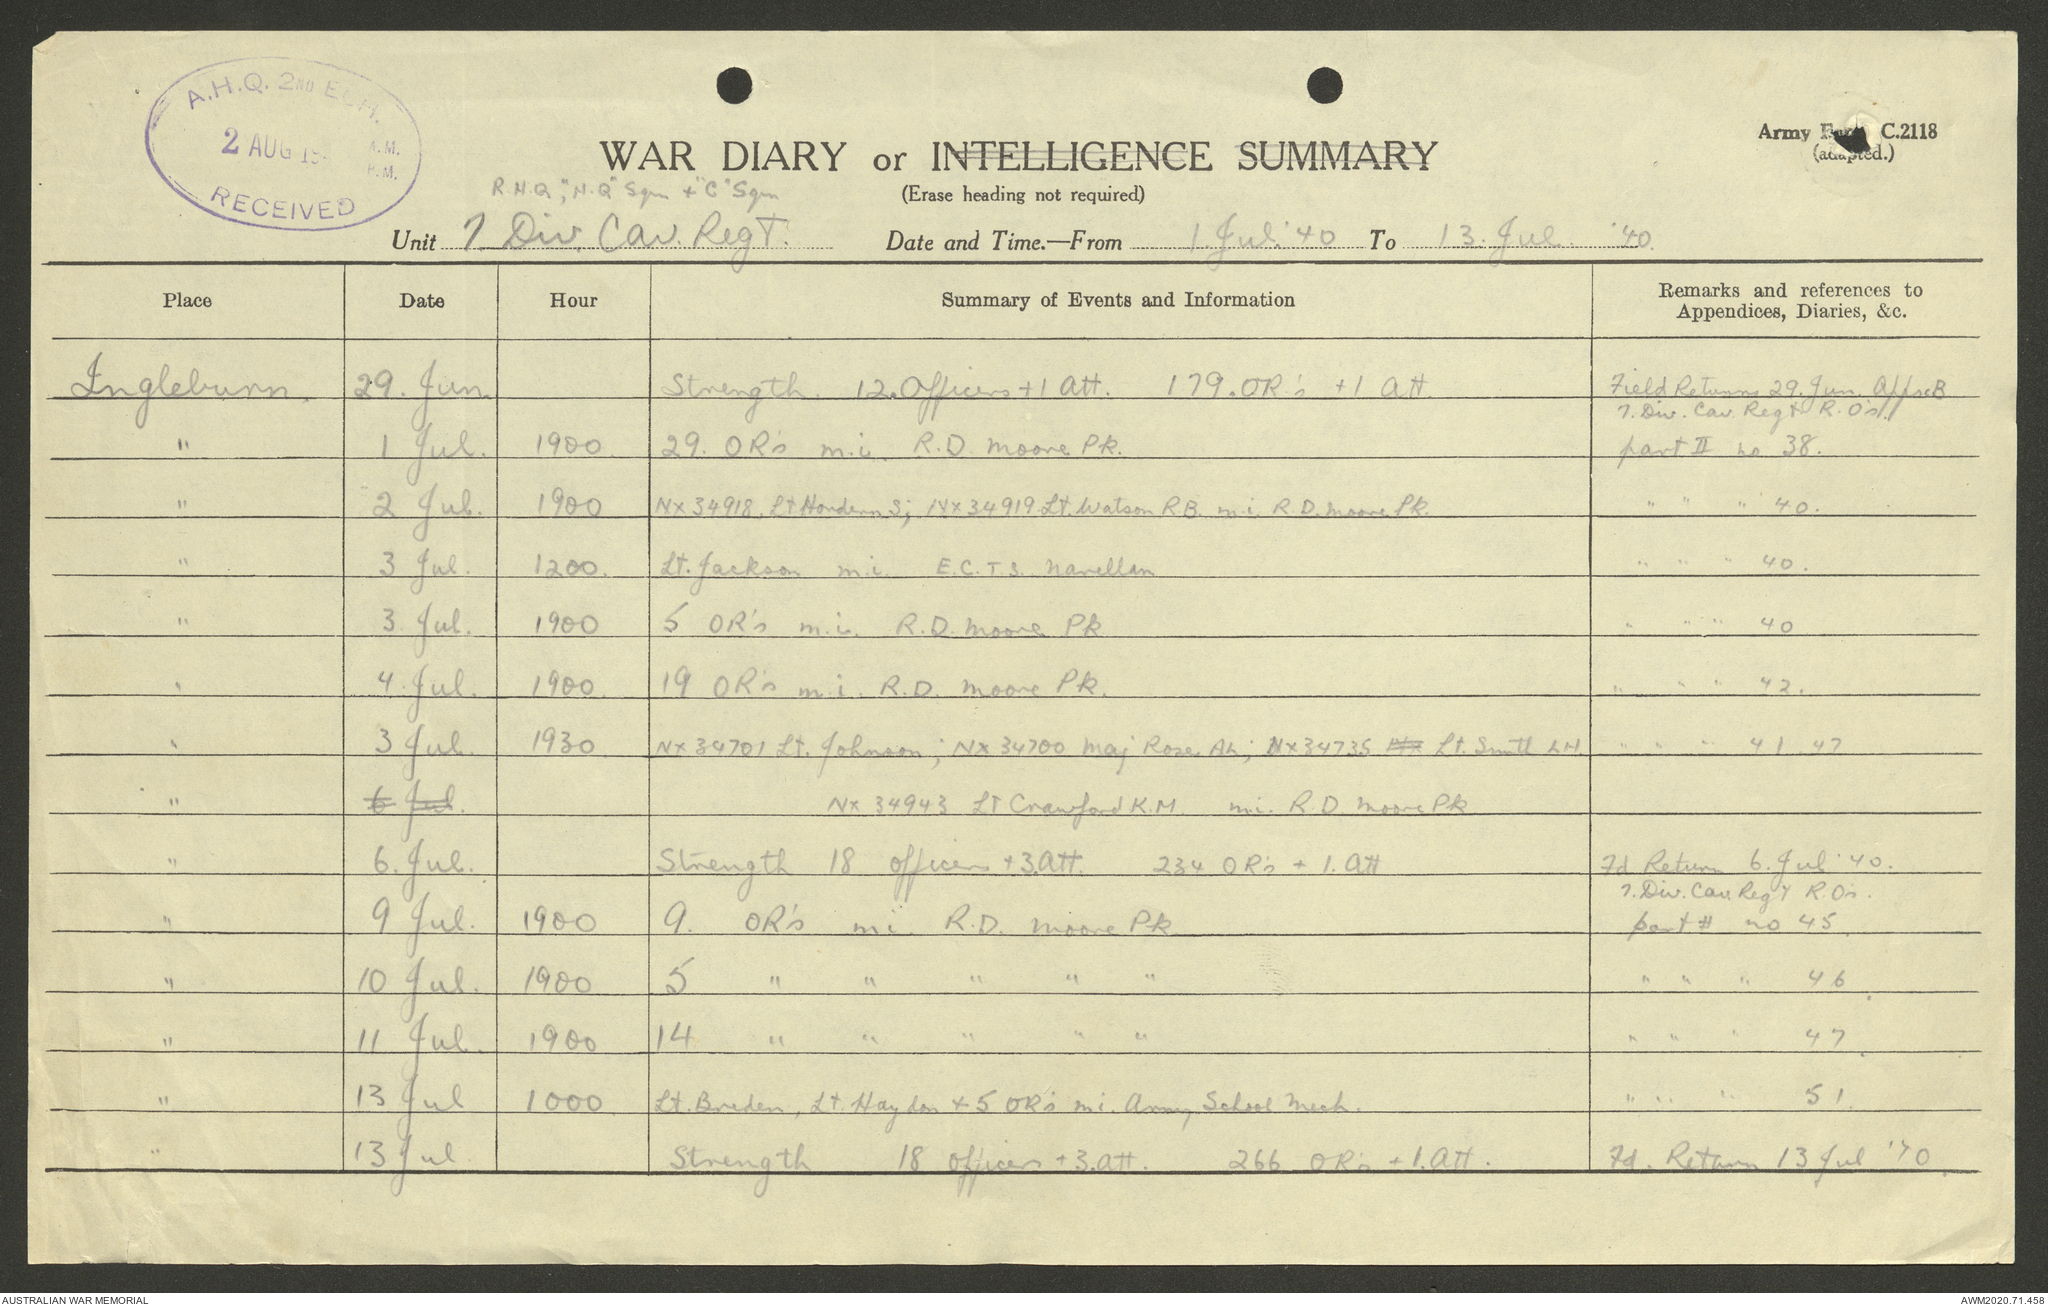 A.H.Q. 2ND ECH.
2 AUG 19 A.M.
P.M.
RECEIVED
Army Form C.2118
(adapted.)
WAR DIARY or INTELLIGENCE SUMMARY
(Erase heading not required)
R.H.Q, "H.Q" Sqn + "C" Sqn
Unit 7 Div. Cav. Regt. Date and Time.—From 1. Jul. '40 To 13. Jul. '40.
Place Date Hour Summary of Events and Information Remarks and references to
Appendices, Diaries, &c.
Ingleburn. 29. Jun. Strength. 12. Officers + 1 Att. 179. OR's + 1 Att. Field Returns 29. Jun. B
7. Div. Cav. Regt R.O's
" 1 Jul. 1900. 29. OR's m.i. R.D. Moore Pk. part II no 38.
" 2 Jul. 1900 NX 34918. Lt Hordern S; NX 34919 Lt. Watson R.B. m.i. R.D. Moore Pk. " " " 40.
" 3 Jul. 1200. Lt. Jackson m.i. E.C.T.S. Narellan " " " 40.
" 3. Jul. 1900 5 OR's m.i. R.D. Moore Pk " " " 40
" 4. Jul. 1900. 19 OR's m.i. R.D. Moore Pk. " " " 42.
" 3 Jul. 1930 NX 34701 Lt. Johnson; NX 34700 Maj Rose AL; NX 34735 NX Lt. Smith LH " " " 41 47
" 6 Jul. NX 34943 Lt Crawford K.M. m.i. R.D. Moore Pk
" 6. Jul. Strength 18 officers + 3. Att. 234 OR's + 1. Att Fd Return 6. Jul '40.
7. Div. Cav. Regt R.O's.
" 9 Jul. 1900 9. OR's m.i. R.D. Moore Pk part II no 45.
" 10 Jul. 1900 5 " " " " " " " " 46.
" 11 Jul. 1900 14 " " " " " " " " 47.
" 13 Jul 1000. Lt. Breden, Lt. Haydon + 5 OR's m.i. Army School Mech. " " " 51.
" 13 Jul Strength 18 officers + 3. Att. 266 OR's + 1. Att. Fd. Return 13 Jul '40.
AUSTRALIAN WAR MEMORIAL AWM2020.71.458